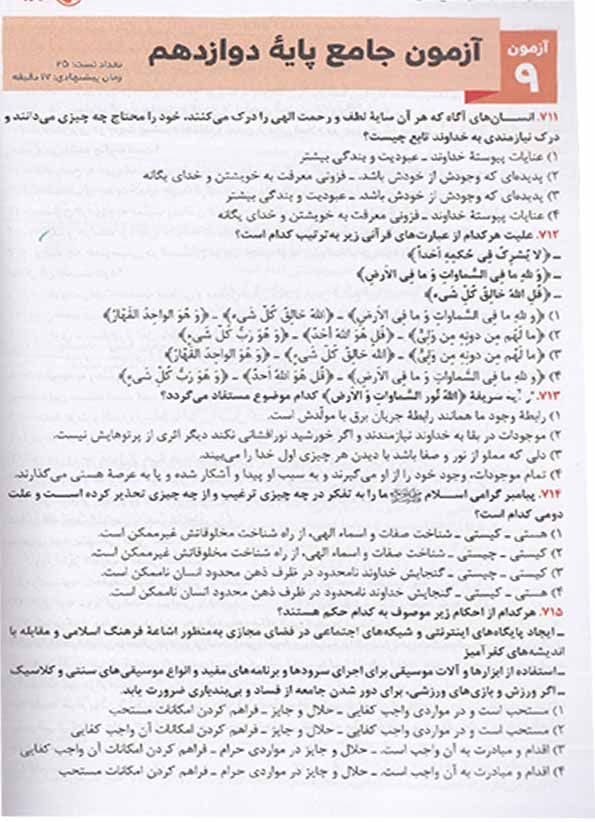 آزمون ۹
آزمون جامع پایهٔ دوازدهم
تعداد تست: ۲۵
زمان پیشنهادی: ۱۷ دقیقه
۷۱۱. انسان‌های آگاه که هر آن سایهٔ لطف و رحمت الهی را درک می‌کنند، خود را محتاج چه چیزی می‌دانند و
درک نیازمندی به خداوند تابع چیست؟
۱) عنایات پیوستهٔ خداوند ـ عبودیت و بندگی بیشتر
۲) پدیده‌ای که وجودش از خودش باشد. ـ فزونی معرفت به خویشتن و خدای یگانه
۳) پدیده‌ای که وجودش از خودش باشد. ـ عبودیت و بندگی بیشتر
۴) عنایات پیوستهٔ خداوند ـ فزونی معرفت به خویشتن و خدای یگانه
۷۱۲. علیت هر کدام از عبارت‌های قرآنی زیر به‌ترتیب کدام است؟
ـ ﴿لا یُشرِکُ فِی حُکمِهِ اَحَداً﴾
ـ ﴿وَ لِلّهِ ما فِی السَّماواتِ وَ ما فِی الاَرضِ﴾
ـ ﴿قُلِ اللهُ خالِقُ کُلِّ شَیء﴾
۱) ﴿وَ لِلّهِ ما فِی السَّماواتِ وَ ما فِی الاَرضِ﴾ ـ ﴿اللهُ خالِقُ کُلِّ شَیءٍ﴾ ـ ﴿وَ هُوَ الواحِدُ القَهّارُ﴾
۲) ﴿ما لَهُم مِن دونِهِ مِن وَلِیٍّ﴾ ـ ﴿قُل هُوَ اللهُ اَحَدٌ﴾ ـ ﴿وَ هُوَ رَبُّ کُلِّ شَیءٍ﴾
۳) ﴿ما لَهُم مِن دونِهِ مِن وَلِیٍّ﴾ ـ ﴿اللهُ خالِقُ کُلِّ شَیءٍ﴾ ـ ﴿وَ هُوَ الواحِدُ القَهّارُ﴾
۴) ﴿وَ لِلّهِ ما فِی السَّماواتِ وَ ما فِی الاَرضِ﴾ ـ ﴿قُل هُوَ اللهُ اَحَدٌ﴾ ـ ﴿وَ هُوَ رَبُّ کُلِّ شَیءٍ﴾
۷۱۳. شریفهٔ ﴿اللهُ نُورُ السَّماواتِ وَ الاَرضِ﴾ کدام موضوع مستفاد می‌گردد؟
۱) رابطهٔ وجود ما همانند رابطهٔ جریان برق با مولّدش است.
۲) موجودات در بقا به خداوند نیازمندند و اگر خورشید نورافشانی نکند دیگر اثری از پرتوهایش نیست.
۳) دلی که مملو از نور و صفا باشد با دیدن هر چیزی اول خدا را می‌بیند.
۴) تمام موجودات، وجود خود را از او می‌گیرند و به سبب او پیدا و آشکار شده و پا به عرصهٔ هستی می‌گذارند.
۷۱۴. پیامبر گرامی اسلام ﷺ ما را به تفکر در چه چیزی ترغیب و از چه چیزی تحذیر کرده است و علت
دومی کدام است؟
۱) هستی ـ کیستی ـ شناخت صفات و اسماء الهی، از راه شناخت مخلوقاتش غیرممکن است.
۲) کیستی ـ چیستی ـ شناخت صفات و اسماء الهی، از راه شناخت مخلوقاتش غیرممکن است.
۳) کیستی ـ چیستی ـ گنجایش خداوند نامحدود در ظرف ذهن محدود انسان ناممکن است.
۴) هستی ـ کیستی ـ گنجایش خداوند نامحدود در ظرف ذهن محدود انسان ناممکن است.
۷۱۵. هر کدام از احکام زیر موصوف به کدام حکم هستند؟
ـ ایجاد پایگاه‌های اینترنتی و شبکه‌های اجتماعی در فضای مجازی به‌منظور اشاعهٔ فرهنگ اسلامی و مقابله با
اندیشه‌های کفرآمیز
ـ استفاده از ابزارها و آلات موسیقی برای اجرای سرودها و برنامه‌های مفید و انواع موسیقی‌های سنتی و کلاسیک
ـ اگر ورزش و بازی‌های ورزشی، برای دور شدن جامعه از فساد و بی‌بندیاری ضرورت یابد
۱) مستحب است و در مواردی واجب کفایی ـ حلال و جایز ـ فراهم کردن امکانات مستحب
۲) مستحب است و در مواردی واجب کفایی ـ حلال و جایز ـ فراهم کردن امکانات آن واجب کفایی
۳) اقدام و مبادرت به آن واجب است. ـ حلال و جایز در مواردی حرام ـ فراهم کردن امکانات آن واجب کفایی
۴) اقدام و مبادرت به آن واجب است. ـ حلال و جایز در مواردی حرام ـ فراهم کردن امکانات مستحب